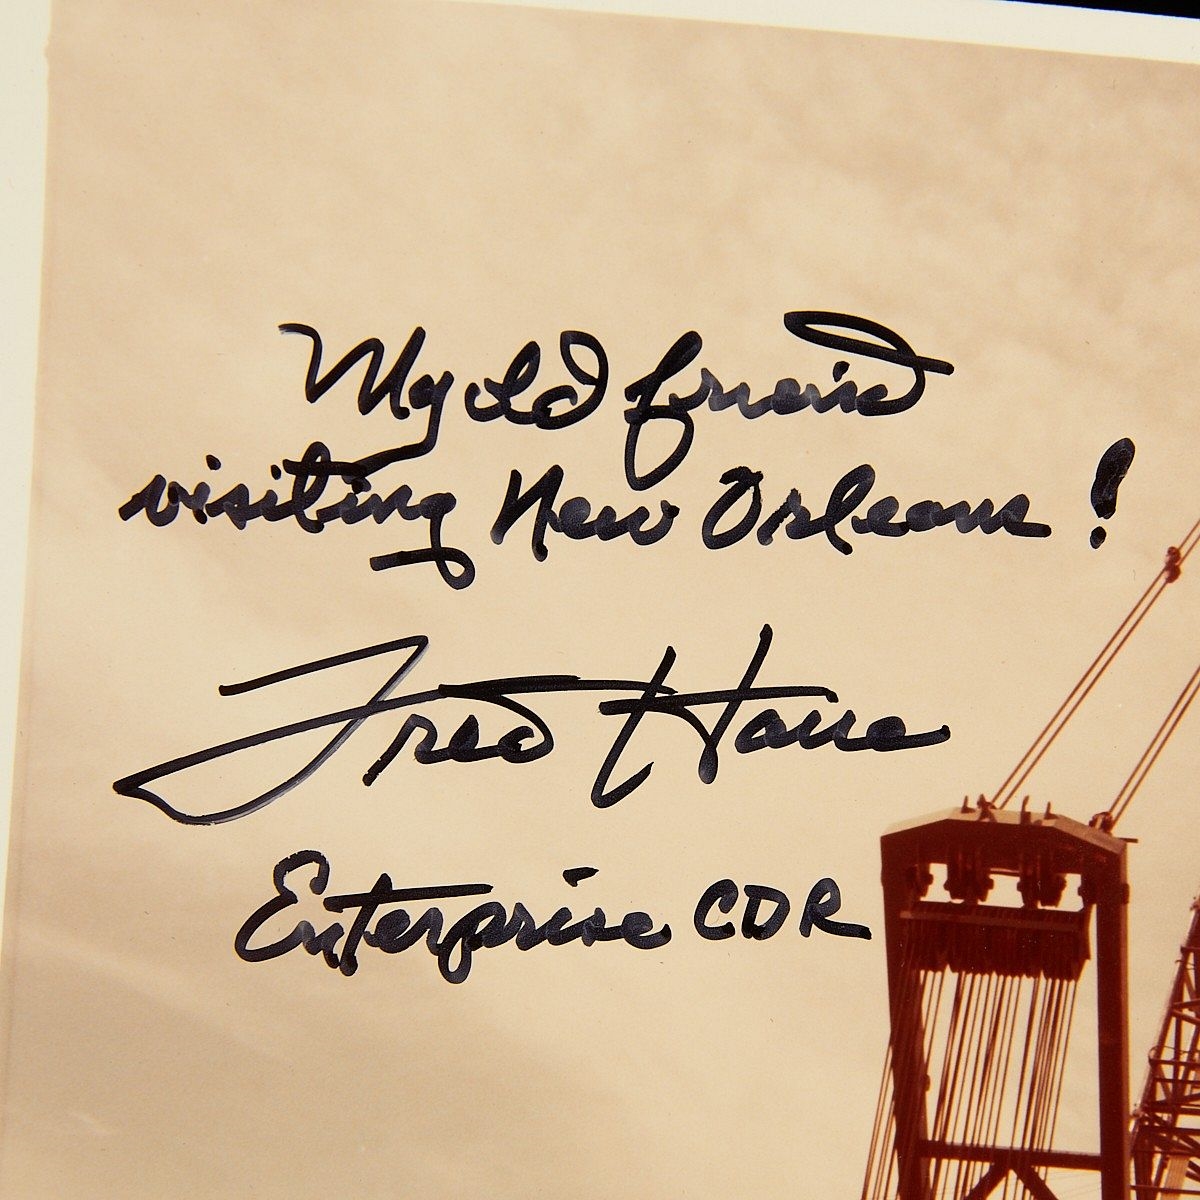 My old friend
visiting New Orleans!
Fred Haise
Enterprise CDR